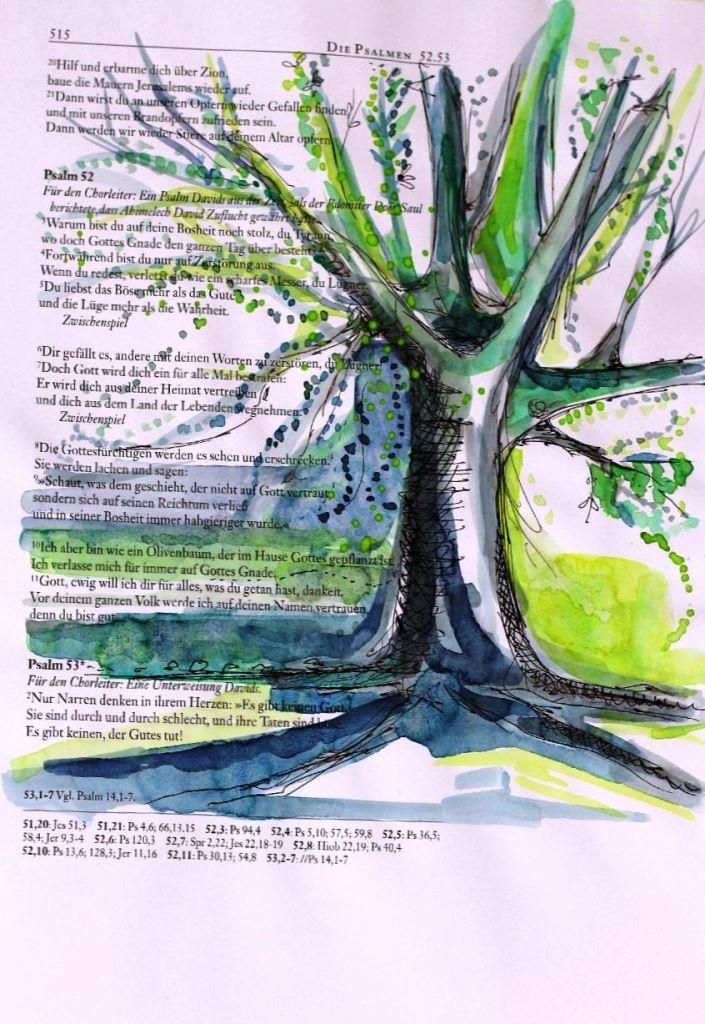 515
DIE PSALMEN 52.53
20Hilf und erbarme dich über Zion,
baue die Mauern Jerusalems wieder auf.
21Dann wirst du an unseren Opfern wieder Gefallen finden
und mit unseren Brandopfern zufrieden sein.
Dann werden wir wieder Stiere auf deinem Altar opfern.
Psalm 52
Für den Chorleiter: Ein Psalm Davids aus der Zeit, als der Edomiter Doëg Saul
berichtete, dass Ahimelech David Zuflucht gewährt
Warum bist du auf deine Bosheit noch stolz, du Tyrann,
wo doch Gottes Gnade den ganzen Tag über besteht?
4Fortwährend bist du nur auf Zerstörung aus.
Wenn du redest, verletzt du wie ein scharfes Messer, du Lügner.
5Du liebst das Böse mehr als das Gute
und die Lüge mehr als die Wahrheit.
Zwischenspiel
6Dir gefällt es, andere mit deinen Worten zu zerstören, du Lügner!
7Doch Gott wird dich ein für alle Mal bestrafen:
Er wird dich aus deiner Heimat vertreiben
und dich aus dem Land der Lebenden wegnehmen.
Zwischenspiel
8Die Gottesfürchtigen werden es sehen und erschrecken.
Sie werden lachen und sagen:
9»Schaut, was dem geschieht, der nicht auf Gott vertraut,
sondern sich auf seinen Reichtum verließ
und in seiner Bosheit immer habgieriger wurde.«
10Ich aber bin wie ein Olivenbaum, der im Hause Gottes gepflanzt ist.
Ich verlasse mich für immer auf Gottes Gnade.
11Gott, ewig will ich dir für alles, was du getan hast, danken.
Vor deinem ganzen Volk werde ich auf deinen Namen vertrauen,
denn du bist gut.
Psalm 53*
Für den Chorleiter: Eine Unterweisung Davids.
2Nur Narren denken in ihrem Herzen: »Es gibt keinen Gott.«
Sie sind durch und durch schlecht, und ihre Taten sind böse.
Es gibt keinen, der Gutes tut!
53,1-7 Vgl. Psalm 14,1-7.
51,20: Jes 51,3 51,21: Ps 4,6; 66,13.15 52,3: Ps 94,4 52,4: Ps 5,10; 57,5; 59,8 52,5: Ps 36,5;
58,4; Jer 9,3-4 52,6: Ps 120,3 52,7: Spr 2,22; Jes 22,18-19 52,8: Hiob 22,19; Ps 40,4
52,10: Ps 13,6; 128,3; Jer 11,16 52,11: Ps 30,13; 54,8 53,2-7: //Ps 14,1-7